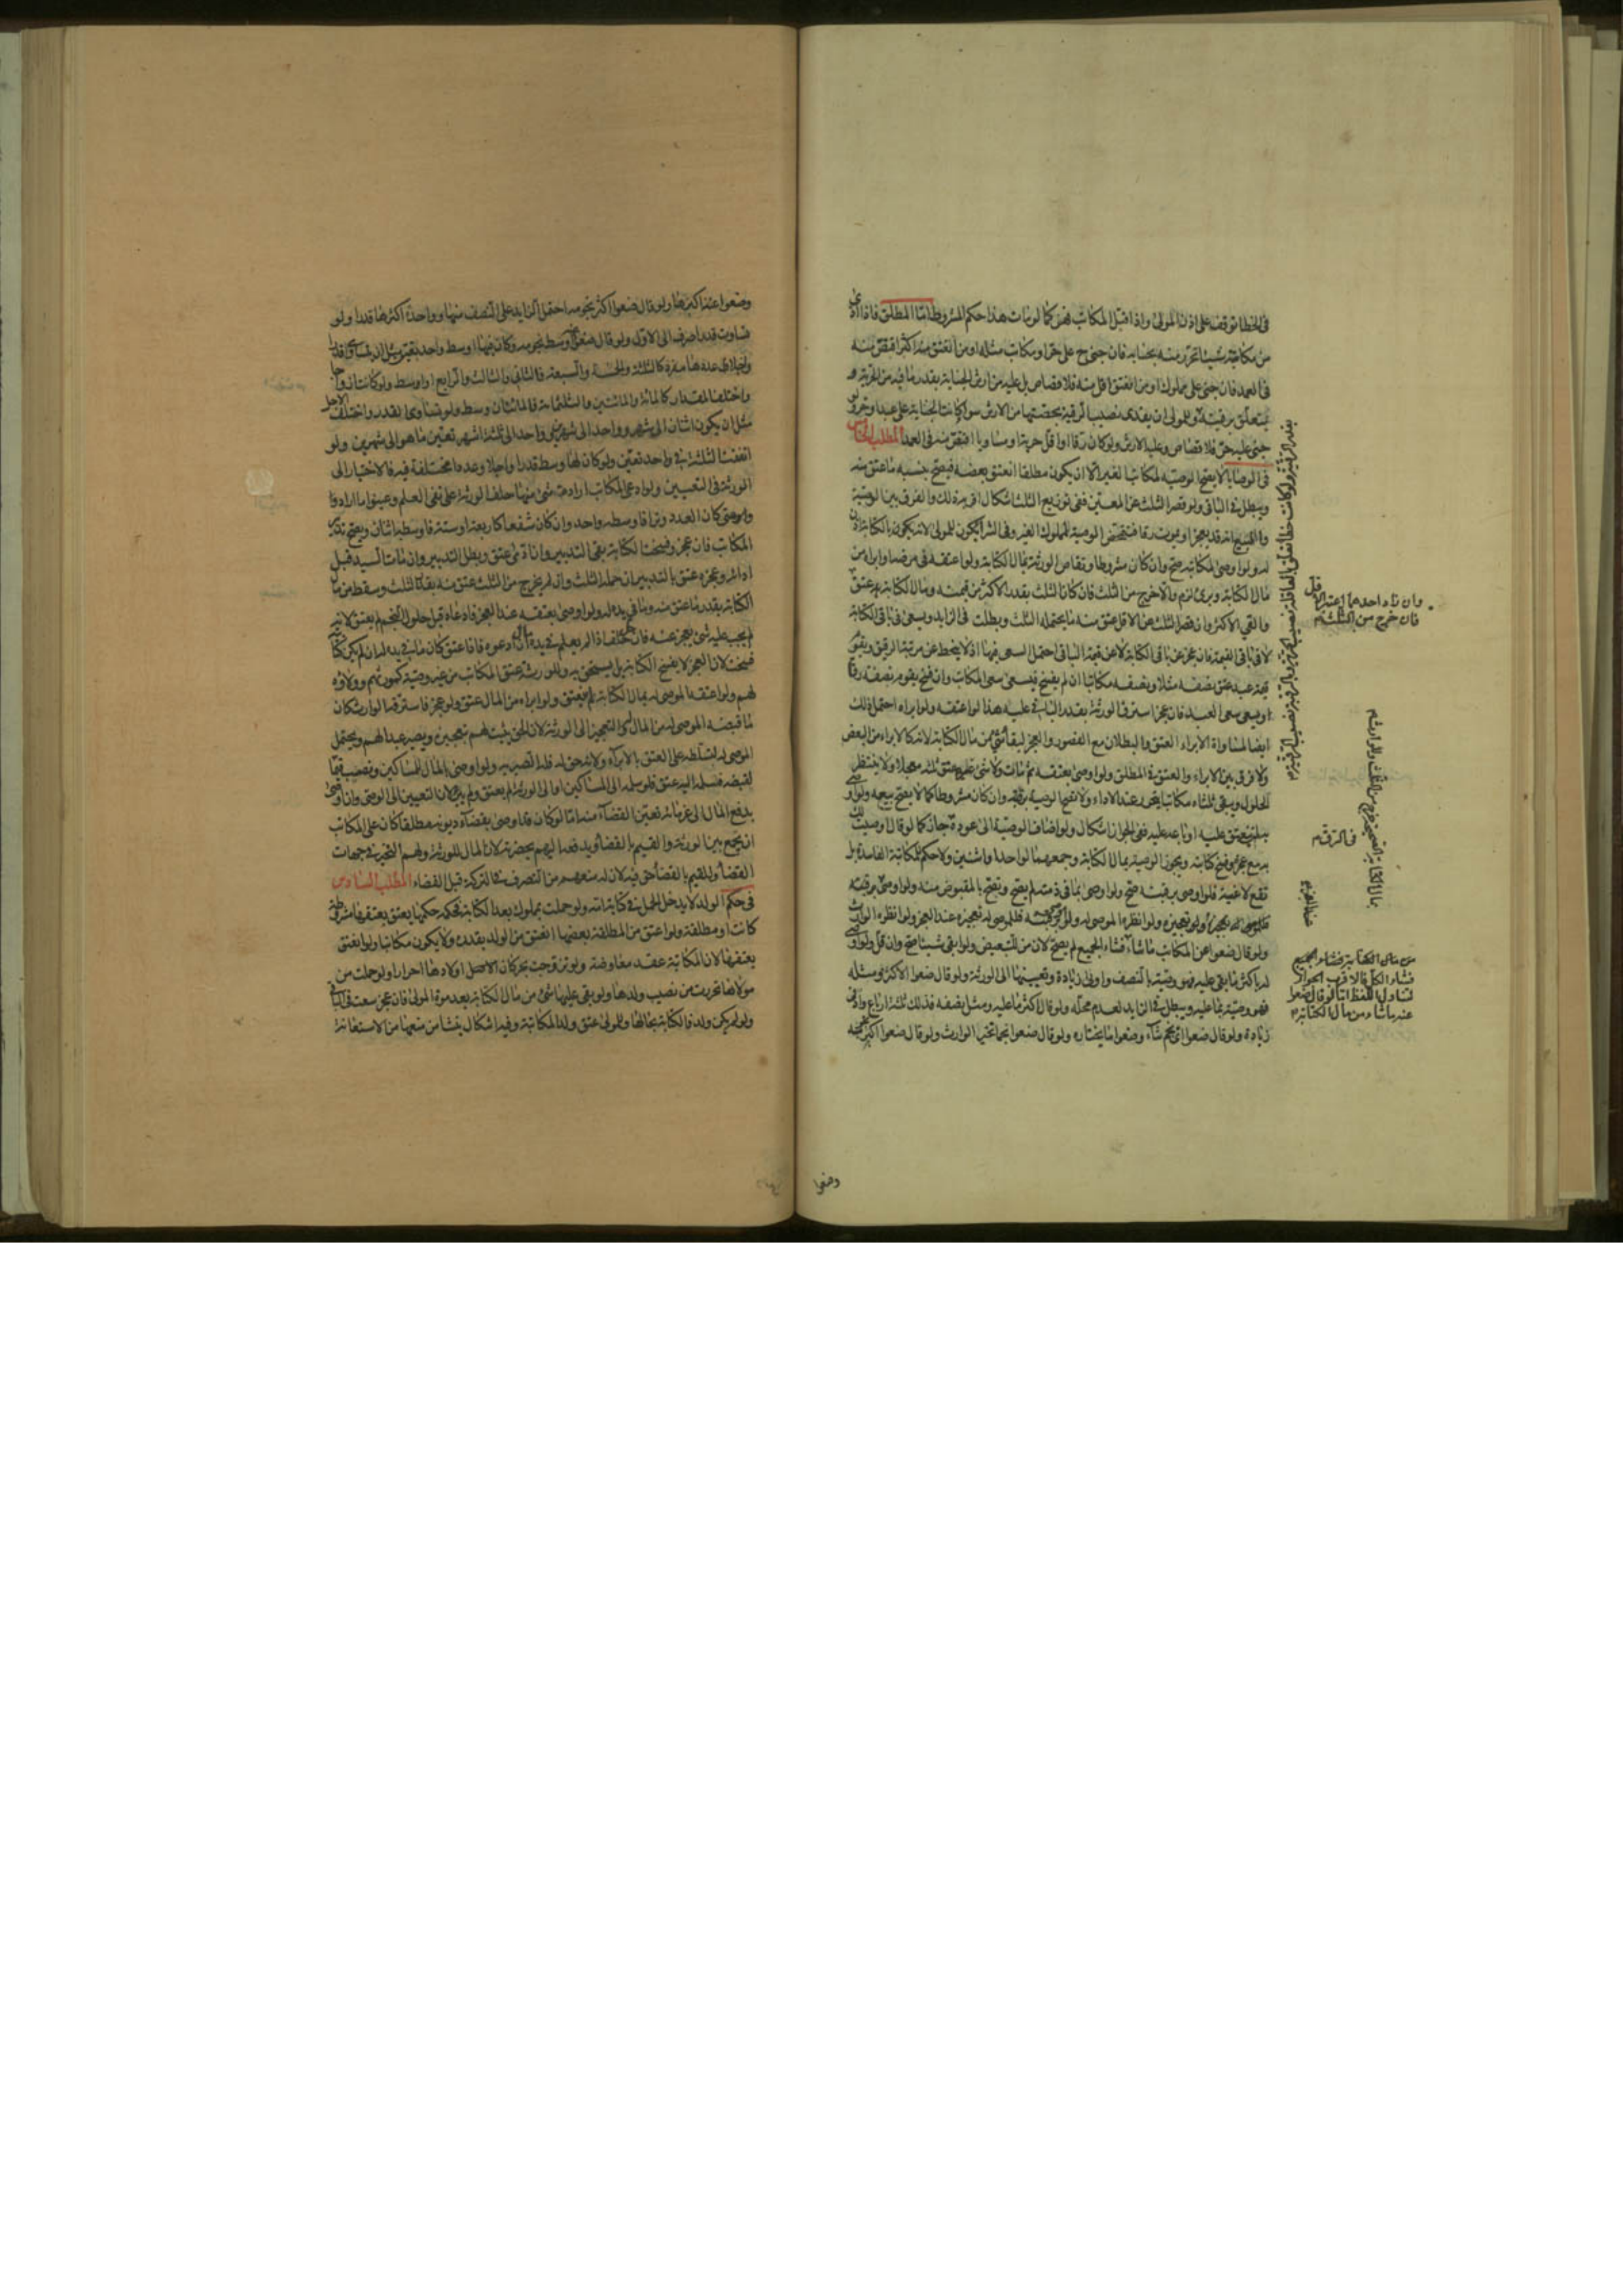 في الخطا توقف على اذن المولى واذا قتل المكاتب فهو كما لو مات هذا حكم المشروط اما المطلق فاذا ادى
من مكاتبته شيئا تحرر منه بحسابه فان جنى ح على حر او مكاتب مثله او من انعتق منه اكثر اقتص منه
في العمد فان جنى على مملوك او من انعتق اقل منه فلا قصاص بل عليه من ارش الجناية بقدر ما فيه من الحرية و
يتعلق برقبته وللمولى ان يفدى نصيب الرقية بحصتها من الارش سواء كانت الجناية على عبد او حر ولو
جنى عليه حر فلا قصاص وعليه الارش ولو كان رقا او اقل حرية او مساويا اقتص منه في العمد المطلب الخامس
في الوصايا لا يصح الوصية لمكاتب الغير الا ان يكون مطلقا انعتق بعضه فيصح بنسبة ما عتق منه
ويبطل في الباقي ولو قصر الثلث عن المعين ففى توزيع الثلث اشكال اقربه ذلك والفرق بين الوصية
والبيع انه قد يعجز او يموت رقا فتمحض الوصية لمملوك الغير وفى الشراء يكون للمولى لانه يكون بالكتابة اذن
له ولو اوصى لمكاتبه صح وان كان مشروطا وتقاص الورثة بمال الكتابة ولو اعتقه في مرضه او ابراه من
مال الكتابة وبرئ لزم والا خرج من الثلث فان كان الثلث بقدر الاكثر من قيمته ومال الكتابة عتق
والغي الاكثر وان قصر الثلث عن الاقل عتق منه ما يحتمله الثلث وبطلت في الزايد ويسعى في باقي الكتابة
لا في باقي القيمة فان عجز عن باقى الكتابة لا عن قيمة الباقي احتمل السعى فيها اذ لا ينحط عن مرتبة الرقيق وبقى
قيمة عبد عتق نصفه مثلا ونصفه مكاتبا ان لم يفسخ فيسعى سعى المكاتب وان فسخ يقوم نصفه رقا
ويسعى سعى العبد فان عجز استرق الورثة بقدر الباقي عليه هذا لو اعتقه ولو ابراه احتمل ذلك
ايضا لمساواة الابراء العتق والبطلان مع القصور والعجز لبقاء شئ من مال الكتابة لانه كالابراء من البعض
ولا فرق بين الابراء والعتق في المطلق ولو اوصى بعتقه ثم مات ولا شئ غيره عتق ثلثه معجلا ولا ينتظر
الحلول ويبقى ثلثاه مكاتبا يتحرر عند الاداء ولا تصح الوصية برقبته وان كان مشروطا كما لا يصح بيعه ولو اوصى
بمن ينعتق عليه او باعه عليه ففى الجواز اشكال ولو اضاف الوصية الى عوده جاز كما لو قال اوصيت لك
به مع عجزه وفسخ كتابته ويجوز الوصية بمال الكتابة وجمعهما لواحد او اثنين ولا حكم للكتابة الفاسدة بل
تقع لاغية فلو اوصى برقبته صح ولو اوصى بما في ذمته لم يصح وتصح بالمقبوض منه ولو اوصى برقبته
ولو قال ضعوا عن المكاتب ما شاء فشاء الجميع لم يصح لان من للتبعيض ولو ابقى شيئا صح وان قل ولو اوصى
له باكثر ما بقي عليه فهو وصية بالنصف وادنى زيادة وتعيينها الى الورثة ولو قال ضعوا الاكثر ومثله
فهو وصية بما عليه ويبطل في الزايد لعدم محله ولو قال اكثر ما عليه ومثل نصفه فذلك ثلثة ارباع وادنى
زيادة ولو قال ضعوا اى نجم شاء وضعوا ما يختاره ولو قال ضعوا نجما تخير الوارث ولو قال ضعوا اكبر نجمه
وان زاد احدهما اعتبر الاقل
فان خرج من الثلث
في الرق
من مال الكتابة فشاء الجميع
فشاء الكل فالاقرب الجواز
لتناول اللفظ اما لو قال ضعوا
عنه ما شاء من مال الكتابة
وضعوا
وضعوا عنه اكبرها ولو قال ضعوا اكثر نجومه احتمل الزايد على النصف منها وواحدة اكثرها قدرا ولو
تساوت قدرا صرف الى الاول ولو قال ضعوا اوسط نجومه وكان فيها اوسط واحد تعين مثل ان تساوى قدرا
واختلفا المقدار كالمائة والمائتين والثلثمائة فالمائتان وسط ولو تساوى القدر واختلف الاجل
مثل ان يكون اثنان الى شهر وواحد الى شهرين وواحد الى ثلثة اشهر تعين ما هو الى شهرين ولو
اتفقت الثلثة في واحد تعين ولو كان لها وسط قدرا واجلا وعددا مختلفة فيه فالاختيار الى
الورثة في التعيين ولو ادعى المكاتب ارادة شئ منها حلف الورثة على نفى العلم وعينوا ما ارادوا
ومتى كان العدد وترا فاوسطه واحد وان كان شفعا كاربعة او ستة فاوسطه اثنان ويصح تدبير
المكاتب فان عجز وفسخت الكتابة بقي التدبير وان ادى عتق وبطل التدبير وان مات السيد قبل
ادائه وعجزه عتق بالتدبير ان حمله الثلث وان لم يخرج من الثلث عتق منه بقدر الثلث وسقط من مال
الكتابة بقدر ما عتق منه وما في يده له ولو اوصى بعتقه عند العجز فادعاه قبل حلول النجم لم يعتق لانه
لم يجب عليه شئ يعجز عنه فان حل حلف اذا لم يعلم في يده مال ادعوه فاذا عتق كان ما في يده له ان لم يكن كتابته
فسخت لان العجز لا يفسخ الكتابة بل يستحق به وللورثة عتق المكاتب من غير وصية كمورثهم وولاؤه
لهم ولو اعتقه الموصى له بمال الكتابة لم يعتق ولو ابراه من المال عتق ولو عجز فاسترقه الوارث كان
ما قبضه الموصى له من المال له والتعجيز الى الورثة لان الحق يثبت لهم بتعجيزه ويصير عبدا لهم ويحتمل
الموصى له لتسلطه على العتق بالابراء ولانه حق له فله الصبر به ولو اوصى بالمال للمساكين ونصب قيما
لقبضه فسلمه اليه عتق فلو سلمه الى المساكين او الى الورثة لم يعتق ولم يبرأ لان التعيين الى الوصى وان اوصى
بدفع المال الى غرمائه تعين القضاء منه اما لو كان قد اوصى بقضاء ديونه مطلقا كان على المكاتب
ان يجمع بين الورثة والقيم بالقضاء ويدفعه اليهم بحضرته لان المال للورثة ولهم التخير في جهات
القضاء وللقيم بالقضاء حق فيه لان له منعهم من التصرف في التركة قبل القضاء المطلب السادس
في حكم الولد لا يدخل الحمل في كتابة امه ولو حملت بمملوك بعد الكتابة فحكمه حكمها يعتق بعتقها مشروطة
كانت او مطلقة ولو اعتق من المطلقة بعضها انعتق من الولد بقدره ولا يكون مكاتبا ولو اعتق
بعتقها لان المكاتبة عقد معاوضة ولو تزوجت بحر كان الاصل اولادها احرارا ولو حملت من
مولاها تحررت من نصيب ولدها ولو بقي عليها شئ من مال الكتابة بعد موت المولى فان عجز سعت في الباقي
ولو لم يكن ولد فالكتابة بحالها وللمولى عتق ولد المكاتبة وفيه اشكال ينشا من منعها من الاستعانة